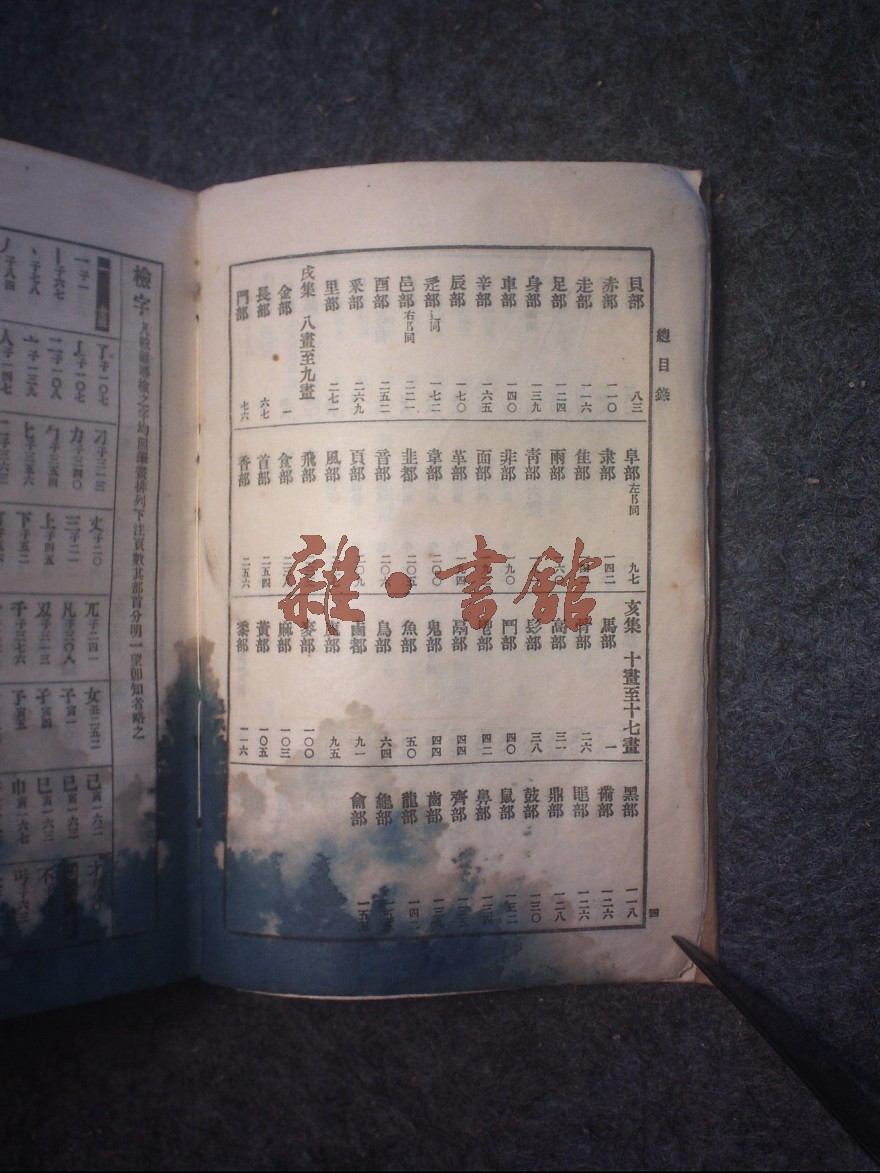 總目錄
貝部 八三
赤部 一一〇
走部 一一六
足部 一二四
身部 一三九
車部 一四〇
辛部 一六五
辰部 一七〇
辵部辶同 一七二
邑部右阝同 二二一
酉部 二五二
釆部 二六九
里部 二七一
戌集 八畫至九畫
金部 一
長部 六七
門部 七六
阜部左阝同 九七
隶部 一四二
隹部
雨部
靑部
非部 一九〇
面部
革部 一九四
韋部 二〇〇
韭部 二〇五
音部 二〇六
頁部 二〇九
風部
飛部
食部
首部 二五四
香部 二五六
亥集 十畫至十七畫
馬部 一
骨部 二六
高部 三一
髟部 三八
鬥部 四〇
鬯部 四二
鬲部 四四
鬼部 四四
魚部 五〇
鳥部 六四
鹵部 九一
鹿部 九五
麥部 一〇〇
麻部 一〇三
黃部 一〇五
黍部 一一六
黑部 一一八
黹部 一二六
黽部 一二六
鼎部 一二八
鼓部 一三〇
鼠部 一三二
鼻部 一三四
齊部
齒部 一三八
龍部 一四二
龜部
龠部
四
檢字 凡較難尋檢之字均照筆畫排列下注頁數其部首分明一望卽知者略之
一畫
一子一
丨子六七
丶子七八
丿子八四
了子一〇七
亅子一〇七
二子一〇八
亠子一三九
人子一四七
刀子三一三
力子三四〇
勹子三五六
匕子三五六
丈子二〇
三子二一
上子四五
下子五二
兀子二四一
凡子三〇八
刄子三一三
千子三七六
女丑二五二
子寅一
孑寅四
孒寅五
己寅一六二
已寅一六三
巳寅一六三
巾寅一六七
雜·書館